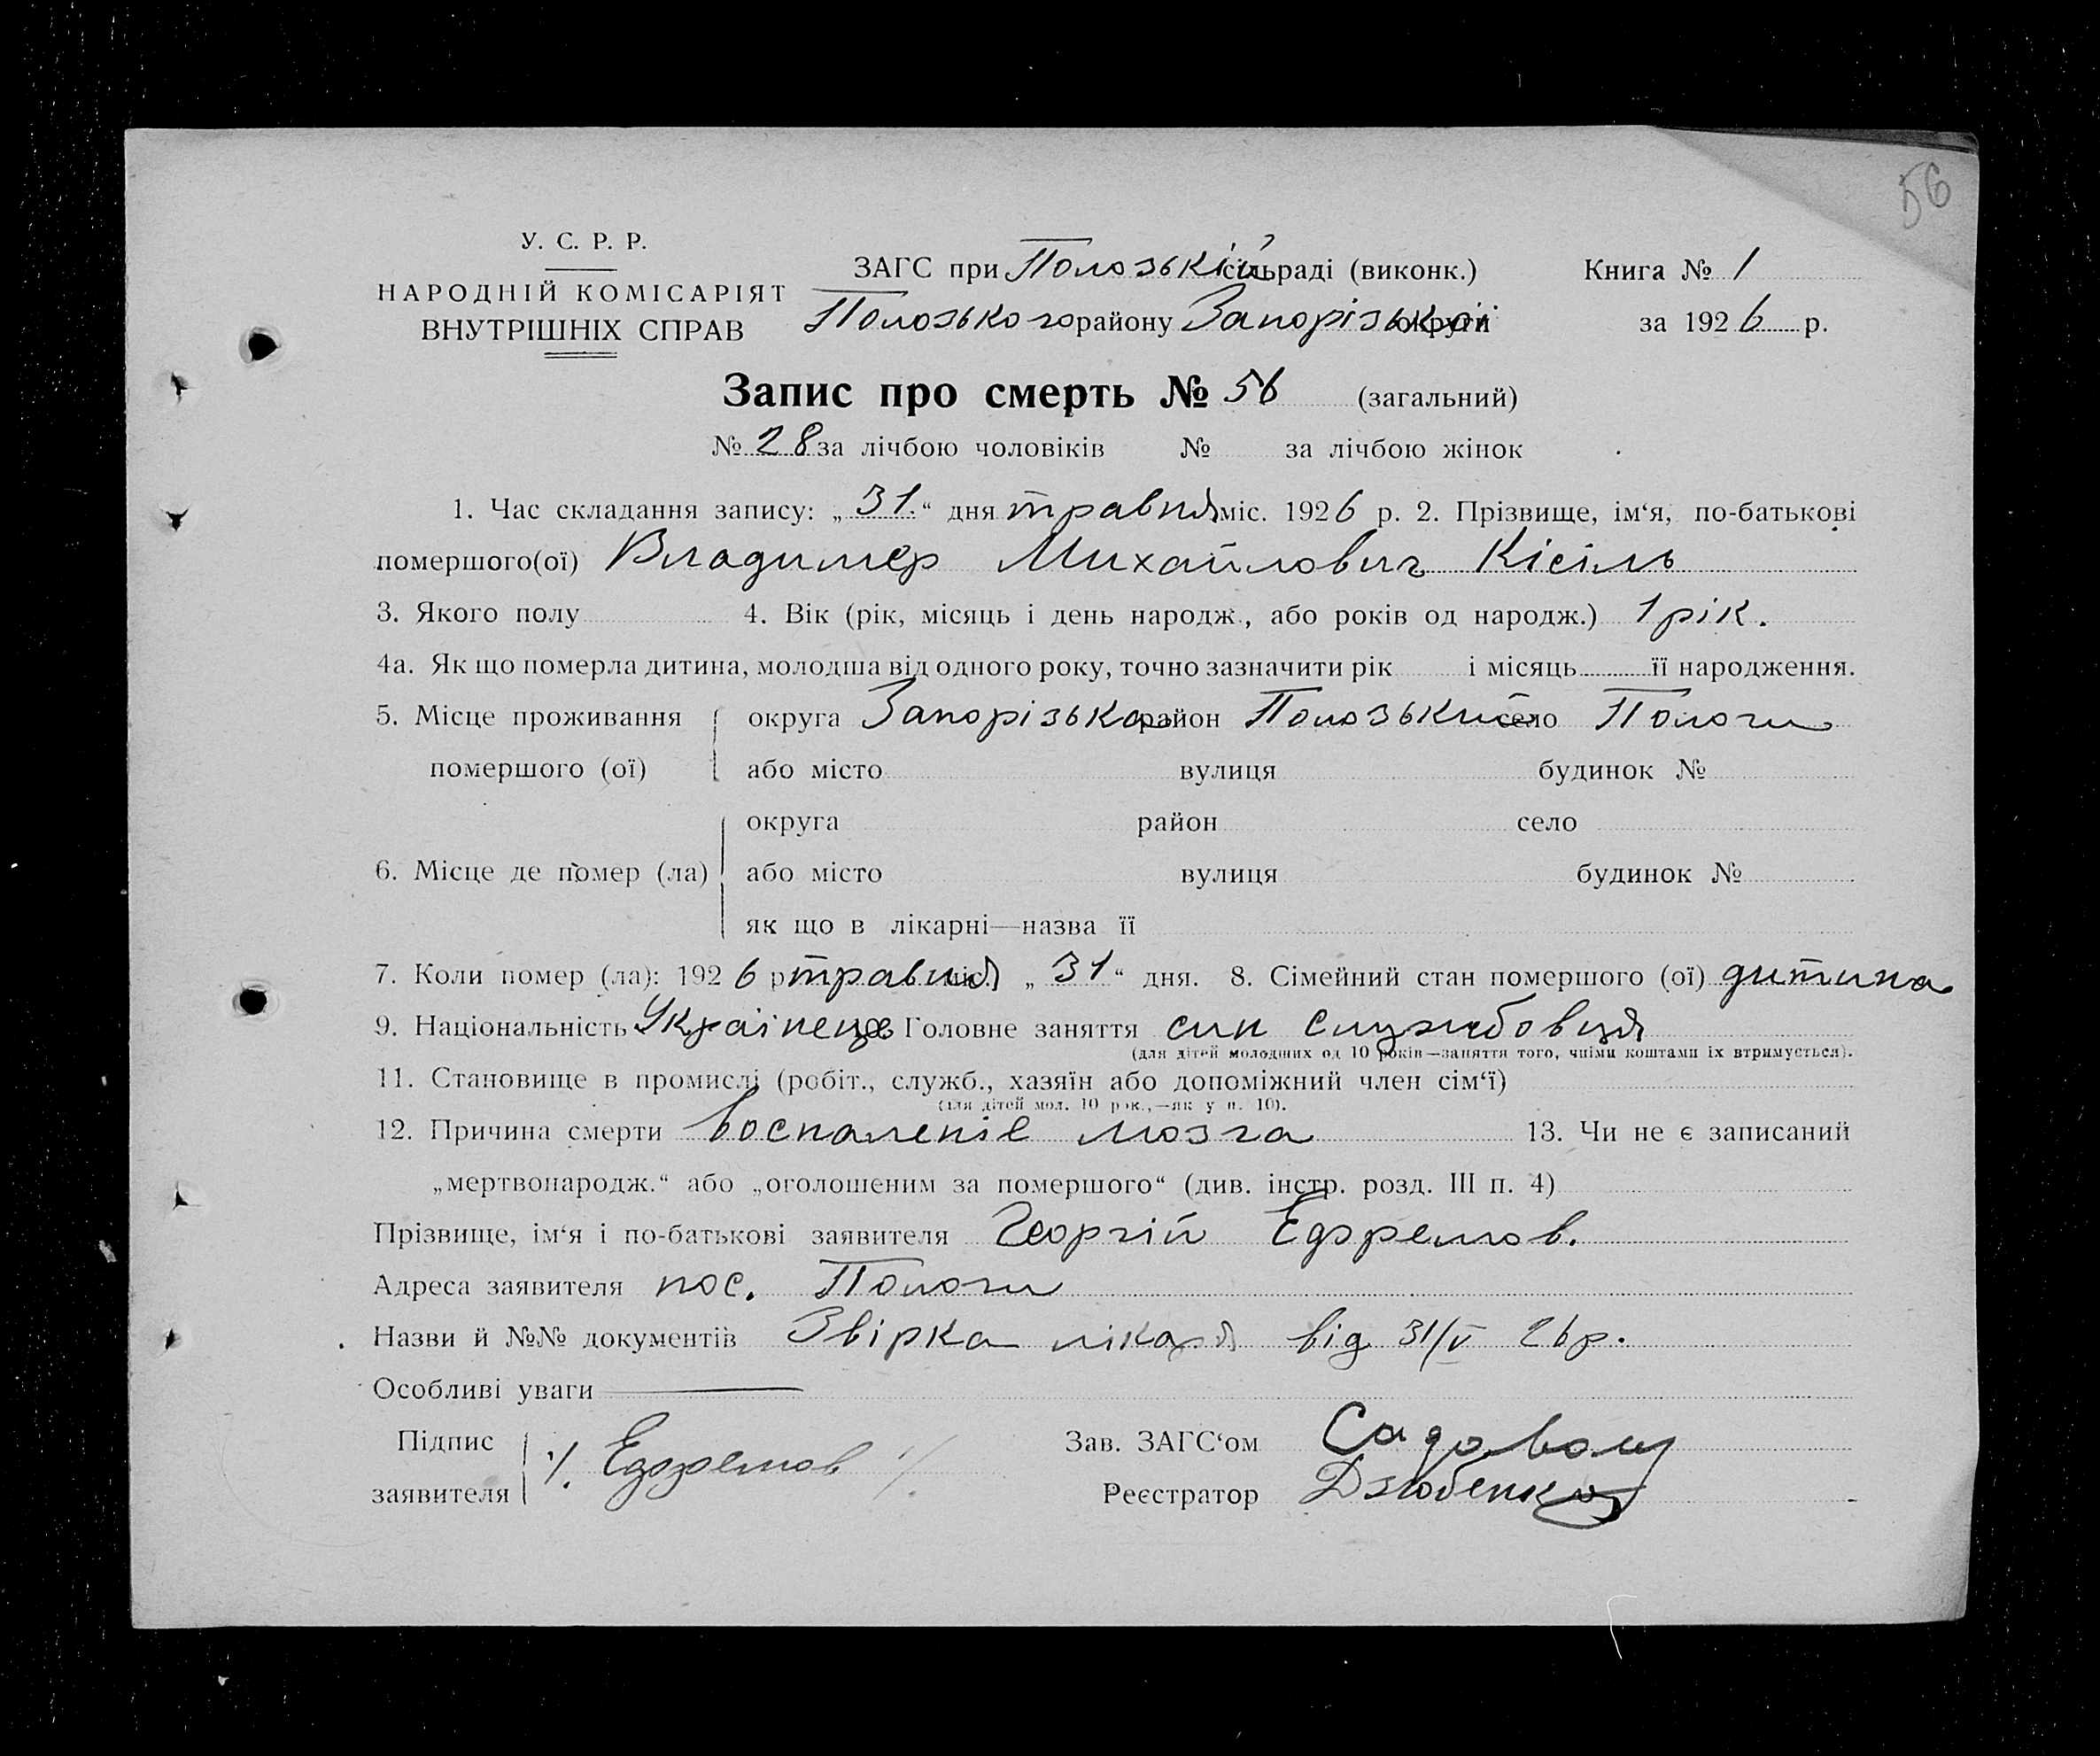 56
У. С. Р. Р.
НАРОДНІЙ КОМІСАРІЯТ
ВНУТРІШНІХ СПРАВ
ЗАГС при Пологській сільраді (виконк.) Книга № 1
Пологського району Запорізької округи за 1926 р.
Запис про смерть № 56 (загальний)
№ 28 за лічбою чоловіків № за лічбою жінок
1. Час складання запису: „31.“ дня травня міс. 1926 р. 2. Прізвище, ім‘я, по-батькові
помершого(ої) Владимер Михайлович Кісіль
3. Якого полу 4. Вік (рік, місяць і день народж., або років од народж.) 1 рік.
4а. Як що померла дитина, молодша від одного року, точно зазначити рік і місяць її народження.
5. Місце проживання округа Запорізька район Пологський село Пологи
помершого (ої) або місто вулиця будинок №
округа район село
6. Місце де помер (ла) або місто вулиця будинок №
як що в лікарні—назва її
7. Коли помер (ла): 1926 р травня міс. „31“ дня. 8. Сімейний стан помершого (ої) дитина
9. Національність Українець Головне заняття син службовця
(для дітей молодших од 10 років—заняття того, чиїми коштами їх втримується).
11. Становище в промислі (робіт., служб., хазяїн або допоміжний член сім‘ї)
(для дітей мол. 10 рок.,—як у п. 10).
12. Причина смерти воспаленіе мозга 13. Чи не є записаний
„мертвонародж.“ або „оголошеним за помершого“ (див. інстр. розд. III п. 4)
Прізвище, ім‘я і по-батькові заявителя Георгій Ефремов.
Адреса заявителя пос. Пологи
Назви й №№ документів Звірка лікаря від 31/V 26 р.
Особливі уваги
Підпис Ефремов Зав. ЗАГС‘ом
заявителя Реєстратор Дзюбенко